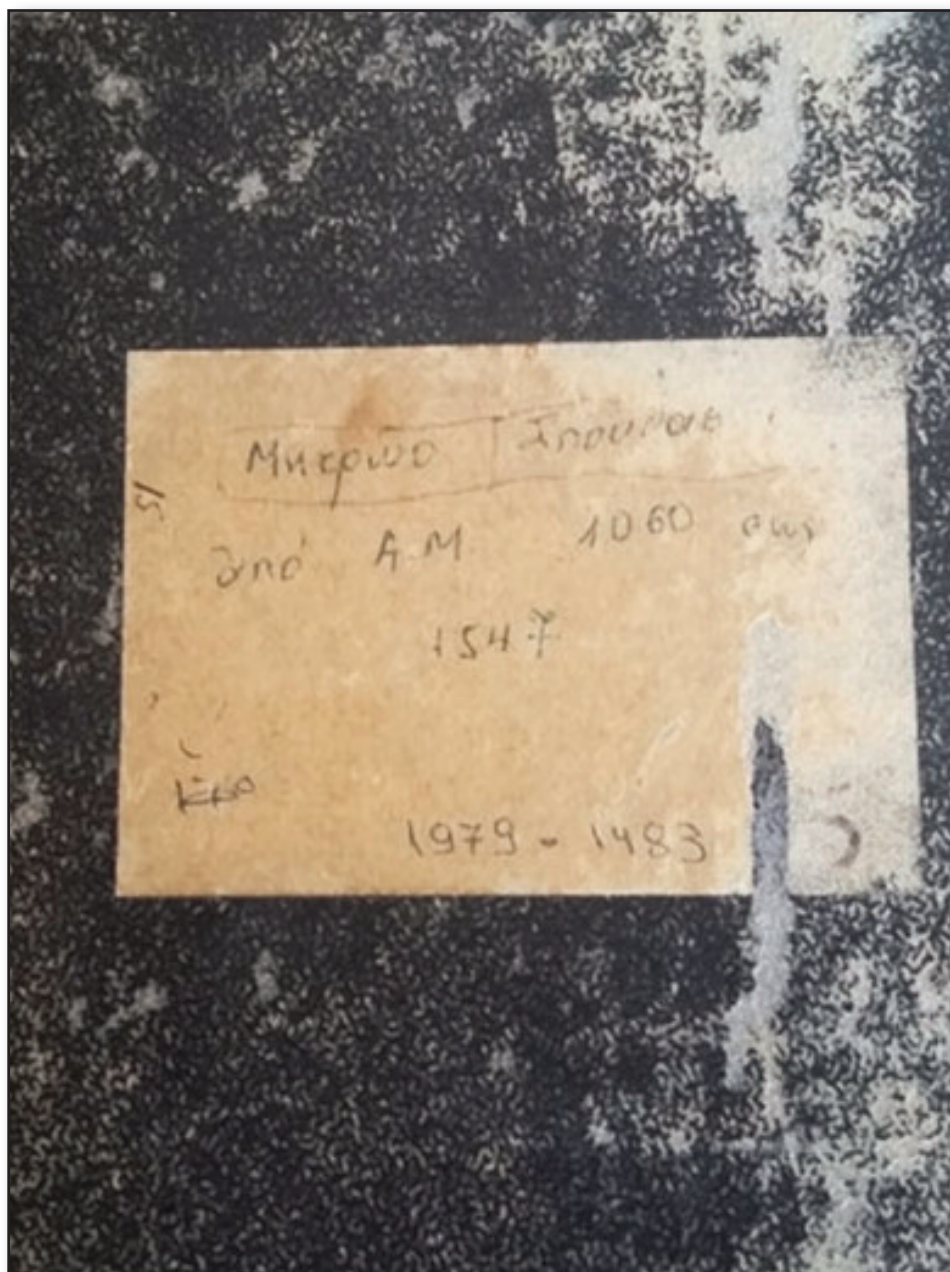 Μητρώο Σπουδασ
από Α.Μ 1060 εως
1547
1979 - 1483